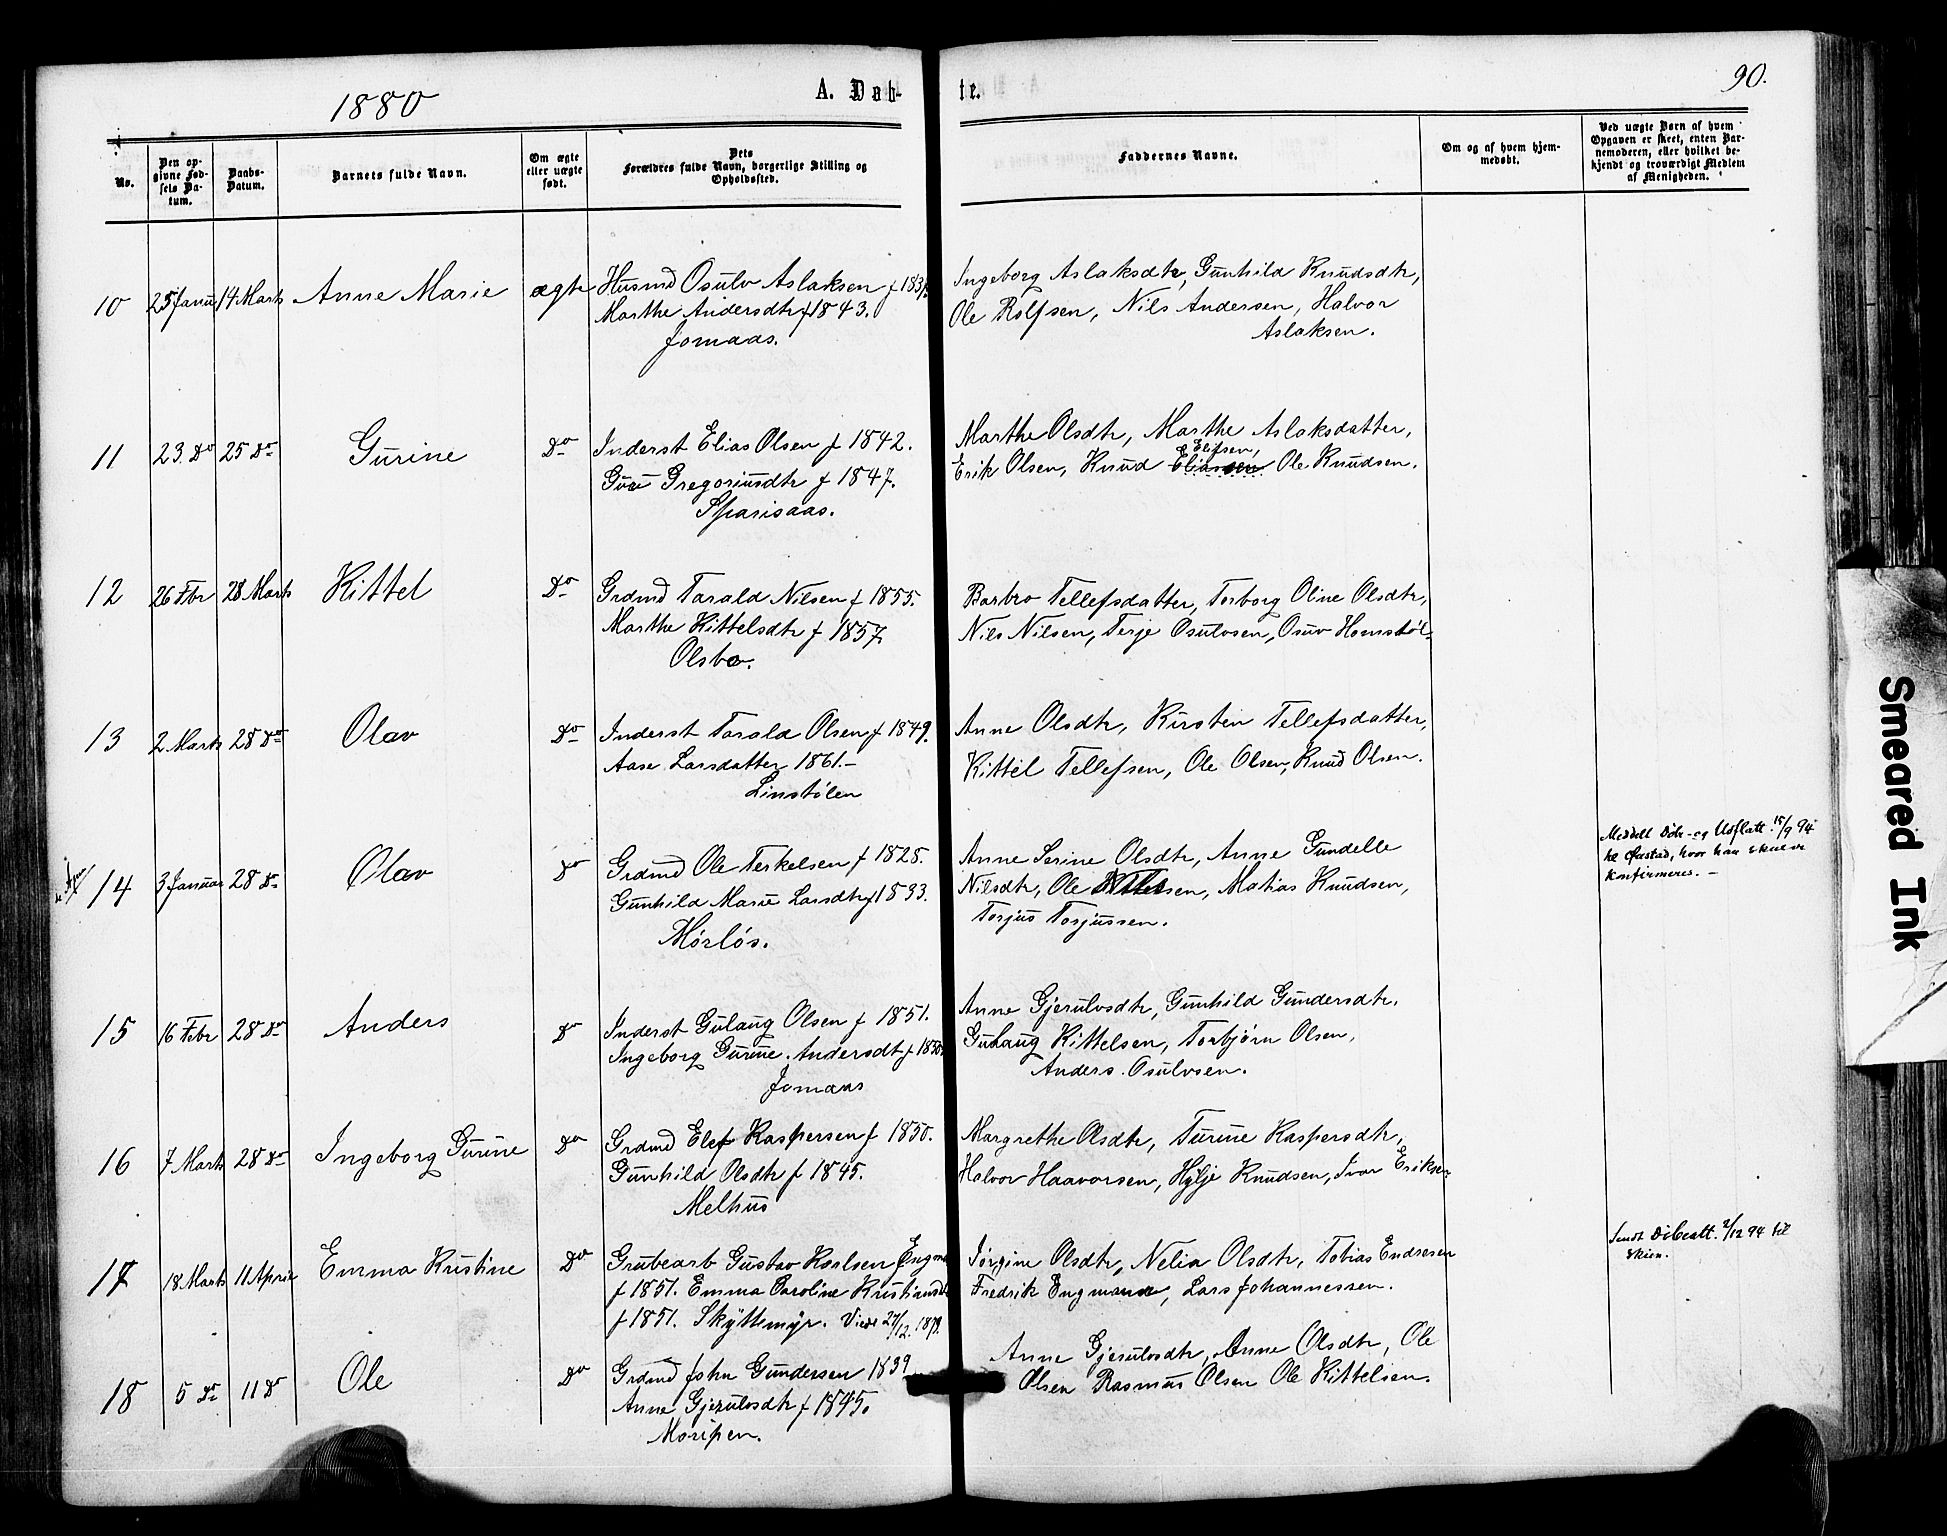 1880
A. Døb-
te.
90.
No.
Den op-
givne Fød-
sels Da-
tum.
Daabs-
Datum.
Barnets fulde Navn.
Om ægte
eller uægte
født.
Dets
Forældres fulde Navn, borgerlige Stilling og
Opholdssted.
Faddernes Navne.
Om og af hvem hjem-
medøbt.
Ved uægte Børn af hvem
Opgaven er skeet, enten Bar-
nemoderen, eller hvilket be-
kjendt og troværdigt Medlem
af Menigheden.
10 25 Januar 14 Marts Anne Marie ægte Husmd Osulv Aslaksen f 1837.
Marthe Andersdtr f 1843.
Jomaas.
Ingeborg Aslaksdtr, Gunhild Knudsdtr,
Ole Rolfsen, Nils Andersen, Halvor
Aslaksen.
11 23. Do 25 Do Gurine Do Inderst Elias Olsen f 1842.
Guro Gregoriusdtr f 1847.
Sparisaas.
Marthe Olsdtr, Marthe Aslaksdatter,
Elefsen,
Erik Olsen, Knud Eliassen Ole Knudsen.
12 26 Febr 28 Marts Kittel Do Grdmd Tarald Nilsen f 1855.
Marthe Kittelsdtr f 1857
Olsbo.
Barbro Tellefsdatter, Torborg Oline Olsdtr,
Nils Nilsen, Terje Osulvsen, Osuv Homstøl.
13 2 Marts 28 Do Olav Do Inderst Tarald Olsen f 1849.
Aase Larsdatter 1861.-
Linstølen
Anne Olsdtr, Kirsten Tellefsdatter,
Kittel Tellefsen, Ole Olsen, Knud Olsen.
14 3 Januar 28 Do Olav Do Grdmd Ole Terkelsen f 1828.
Gunhild Marie Larsdtr f 1833.
Mørløs.
Anne Serine Olsdtr, Anne Gundelle
Nilsdtr, Ole Nilsen, Matias Knudsen,
Torjus Torjussen.
Meddelt Døbe- og Udflatt. 15/9 94
til Øiestad, hvor han skulde
konfirmeres. -
15 16 Febr 28 Do Anders Do Inderst Gulaug Olsen f 1851.
Ingeborg Gurine Andersdt f 1850.
Jomaas
Anne Gjerulvsdtr, Gunhild Gundersdtr.
Guhaug Kittelsen, Torbjørn Olsen,
Anders Osulvsen.
16 7 Marts 28 Do Ingeborg Gurine Do Grdmd Elef Kaspersen f 1850.
Gunhild Olsdtr f 1845.
Melhus
Margrethe Olsdtr, Turine Kaspersdtr,
Halvor Haavorsen, Hylje Knudsen, Ivar Eriksen
17 18 Marts 11 April Emma Kristine Do Grubearb Gustav Karlsen Engman
f 1851. Emma Caroline Kristiansdtr
f 1851. Skyttemyr. Viede 27/12. 1879.
Jørgine Olsdtr, Nelia Olsdtr, Tobias Endresen
Fredrik Engmann, Lars Johannessen.
Sendt Døbeatt. 2/12 94 til
Skien.
18 5 Do 11 Do Ole Do Grdmd John Gundersen 1839
Anne Gjerulvsdtr f 1845.
Moripen.
Anne Gjerulvsdtr, Anne Olsdtr, Ole
Olsen Rasmus Olsen Ole Kittelsen.
Smeared Ink